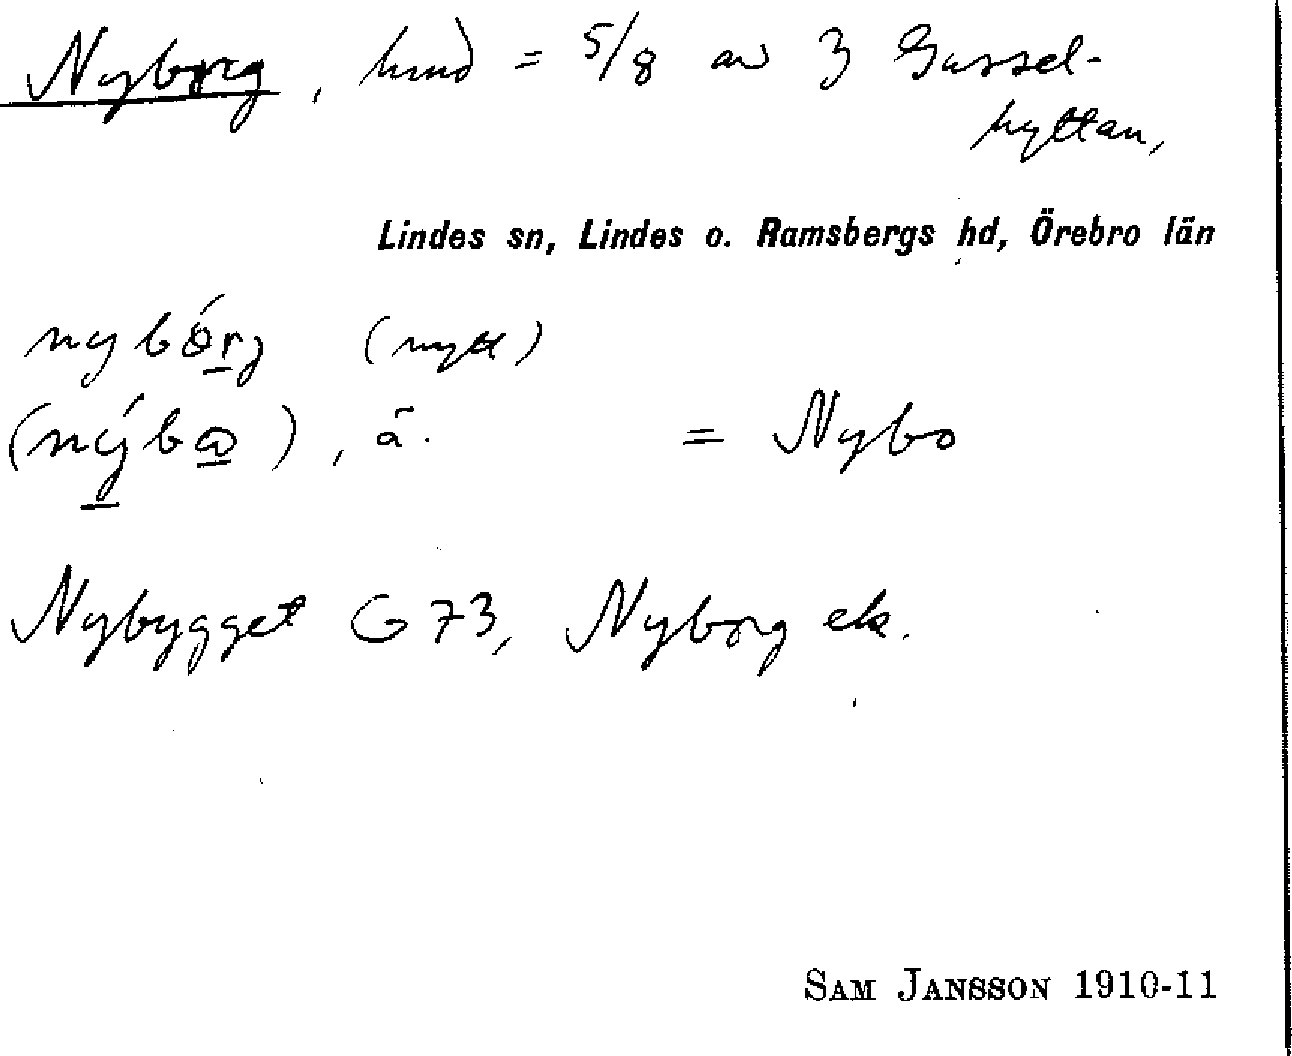 Nyborg, hmd = 5/8 av 3 Gussel-
hyttan,
Lindes sn, Lindes o. Ramsbergs hd, Örebro län
nybórj (nytt)
(nýbω), ā. = Nybo
Nybygget G 73, Nyborg ek.
SAM JANSSON 1910-11